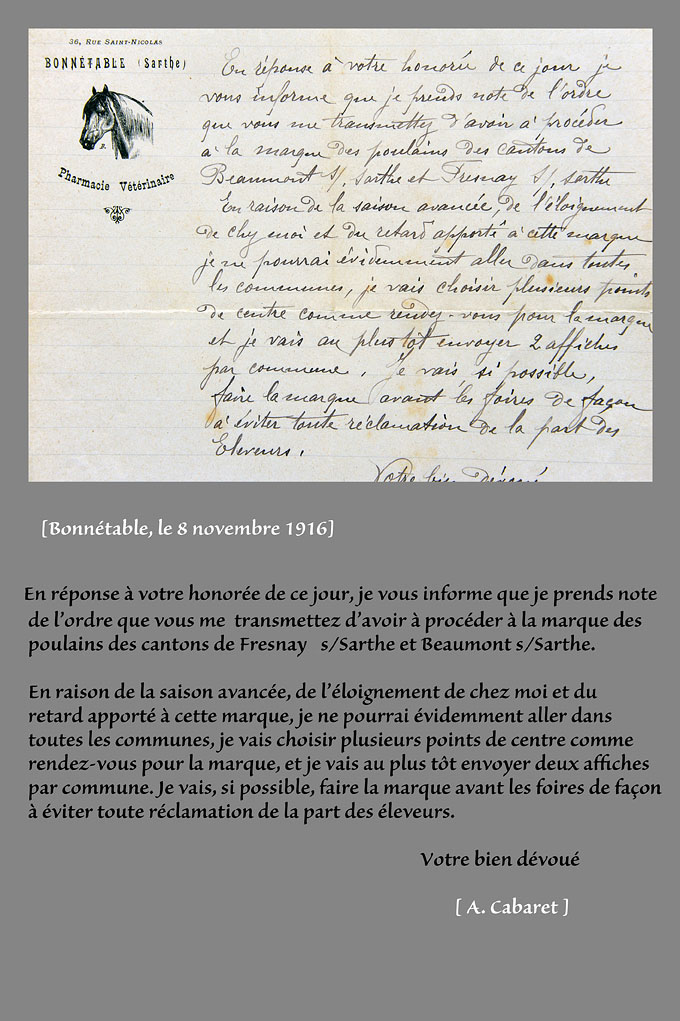 36, Rue Saint-Nicolas
BONNÉTABLE (Sarthe)
Pharmacie Vétérinaire
En réponse à votre honorée de ce jour je
vous informe que je prends note de l'ordre
que vous me transmettez d'avoir à procéder
à la marque des poulains des cantons de
Beaumont s/ Sarthe et Fresnay s/ Sarthe
En raison de la saison avancée, de l'éloignement
de chez moi et du retard apporté à cette marque
je ne pourrai évidemment aller dans toutes
les communes, je vais choisir plusieurs points
de centre comme rendez-vous pour la marque
et je vais au plus tôt envoyer 2 affiches
par commune. Je vais si possible,
faire la marque avant les foires de façon
à éviter toute réclamation de la part des
Eleveurs.
Votre bien dévoué
[Bonnétable, le 8 novembre 1916]
En réponse à votre honorée de ce jour, je vous informe que je prends note
de l'ordre que vous me transmettez d'avoir à procéder à la marque des
poulains des cantons de Fresnay s/Sarthe et Beaumont s/Sarthe.
En raison de la saison avancée, de l'éloignement de chez moi et du
retard apporté à cette marque, je ne pourrai évidemment aller dans
toutes les communes, je vais choisir plusieurs points de centre comme
rendez-vous pour la marque, et je vais au plus tôt envoyer deux affiches
par commune. Je vais, si possible, faire la marque avant les foires de façon
à éviter toute réclamation de la part des éleveurs.
Votre bien dévoué
[ A. Cabaret ]